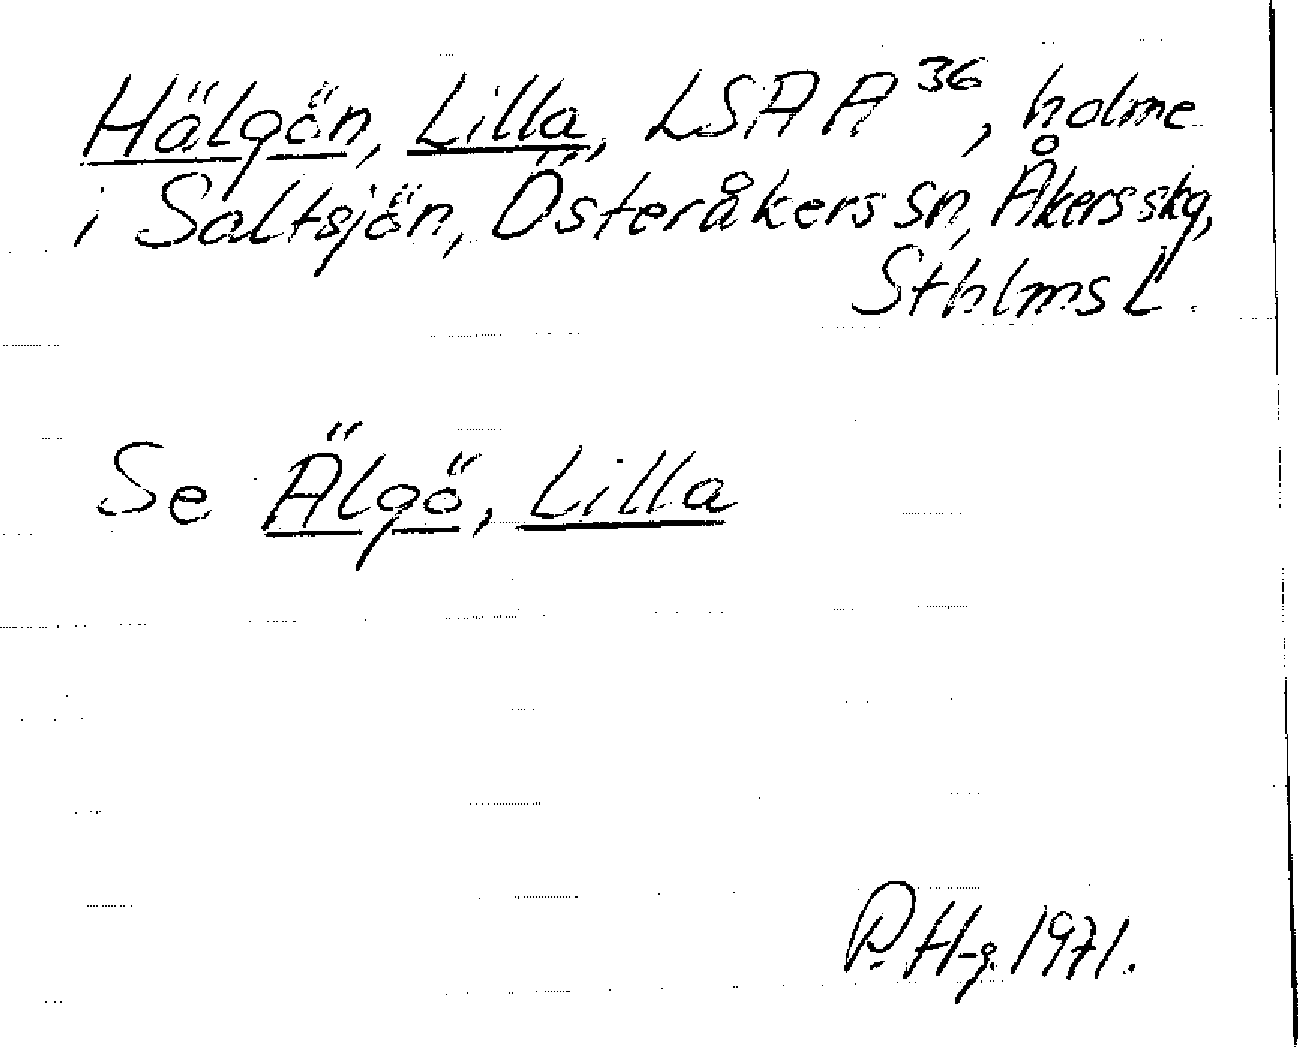 Hälgön, Lilla, LSA A 36, holme
i Saltsjön, Österåkers sn, Åkers skg,
Sthlms L.
Se Älgö, Lilla
P. H-g. 1971.